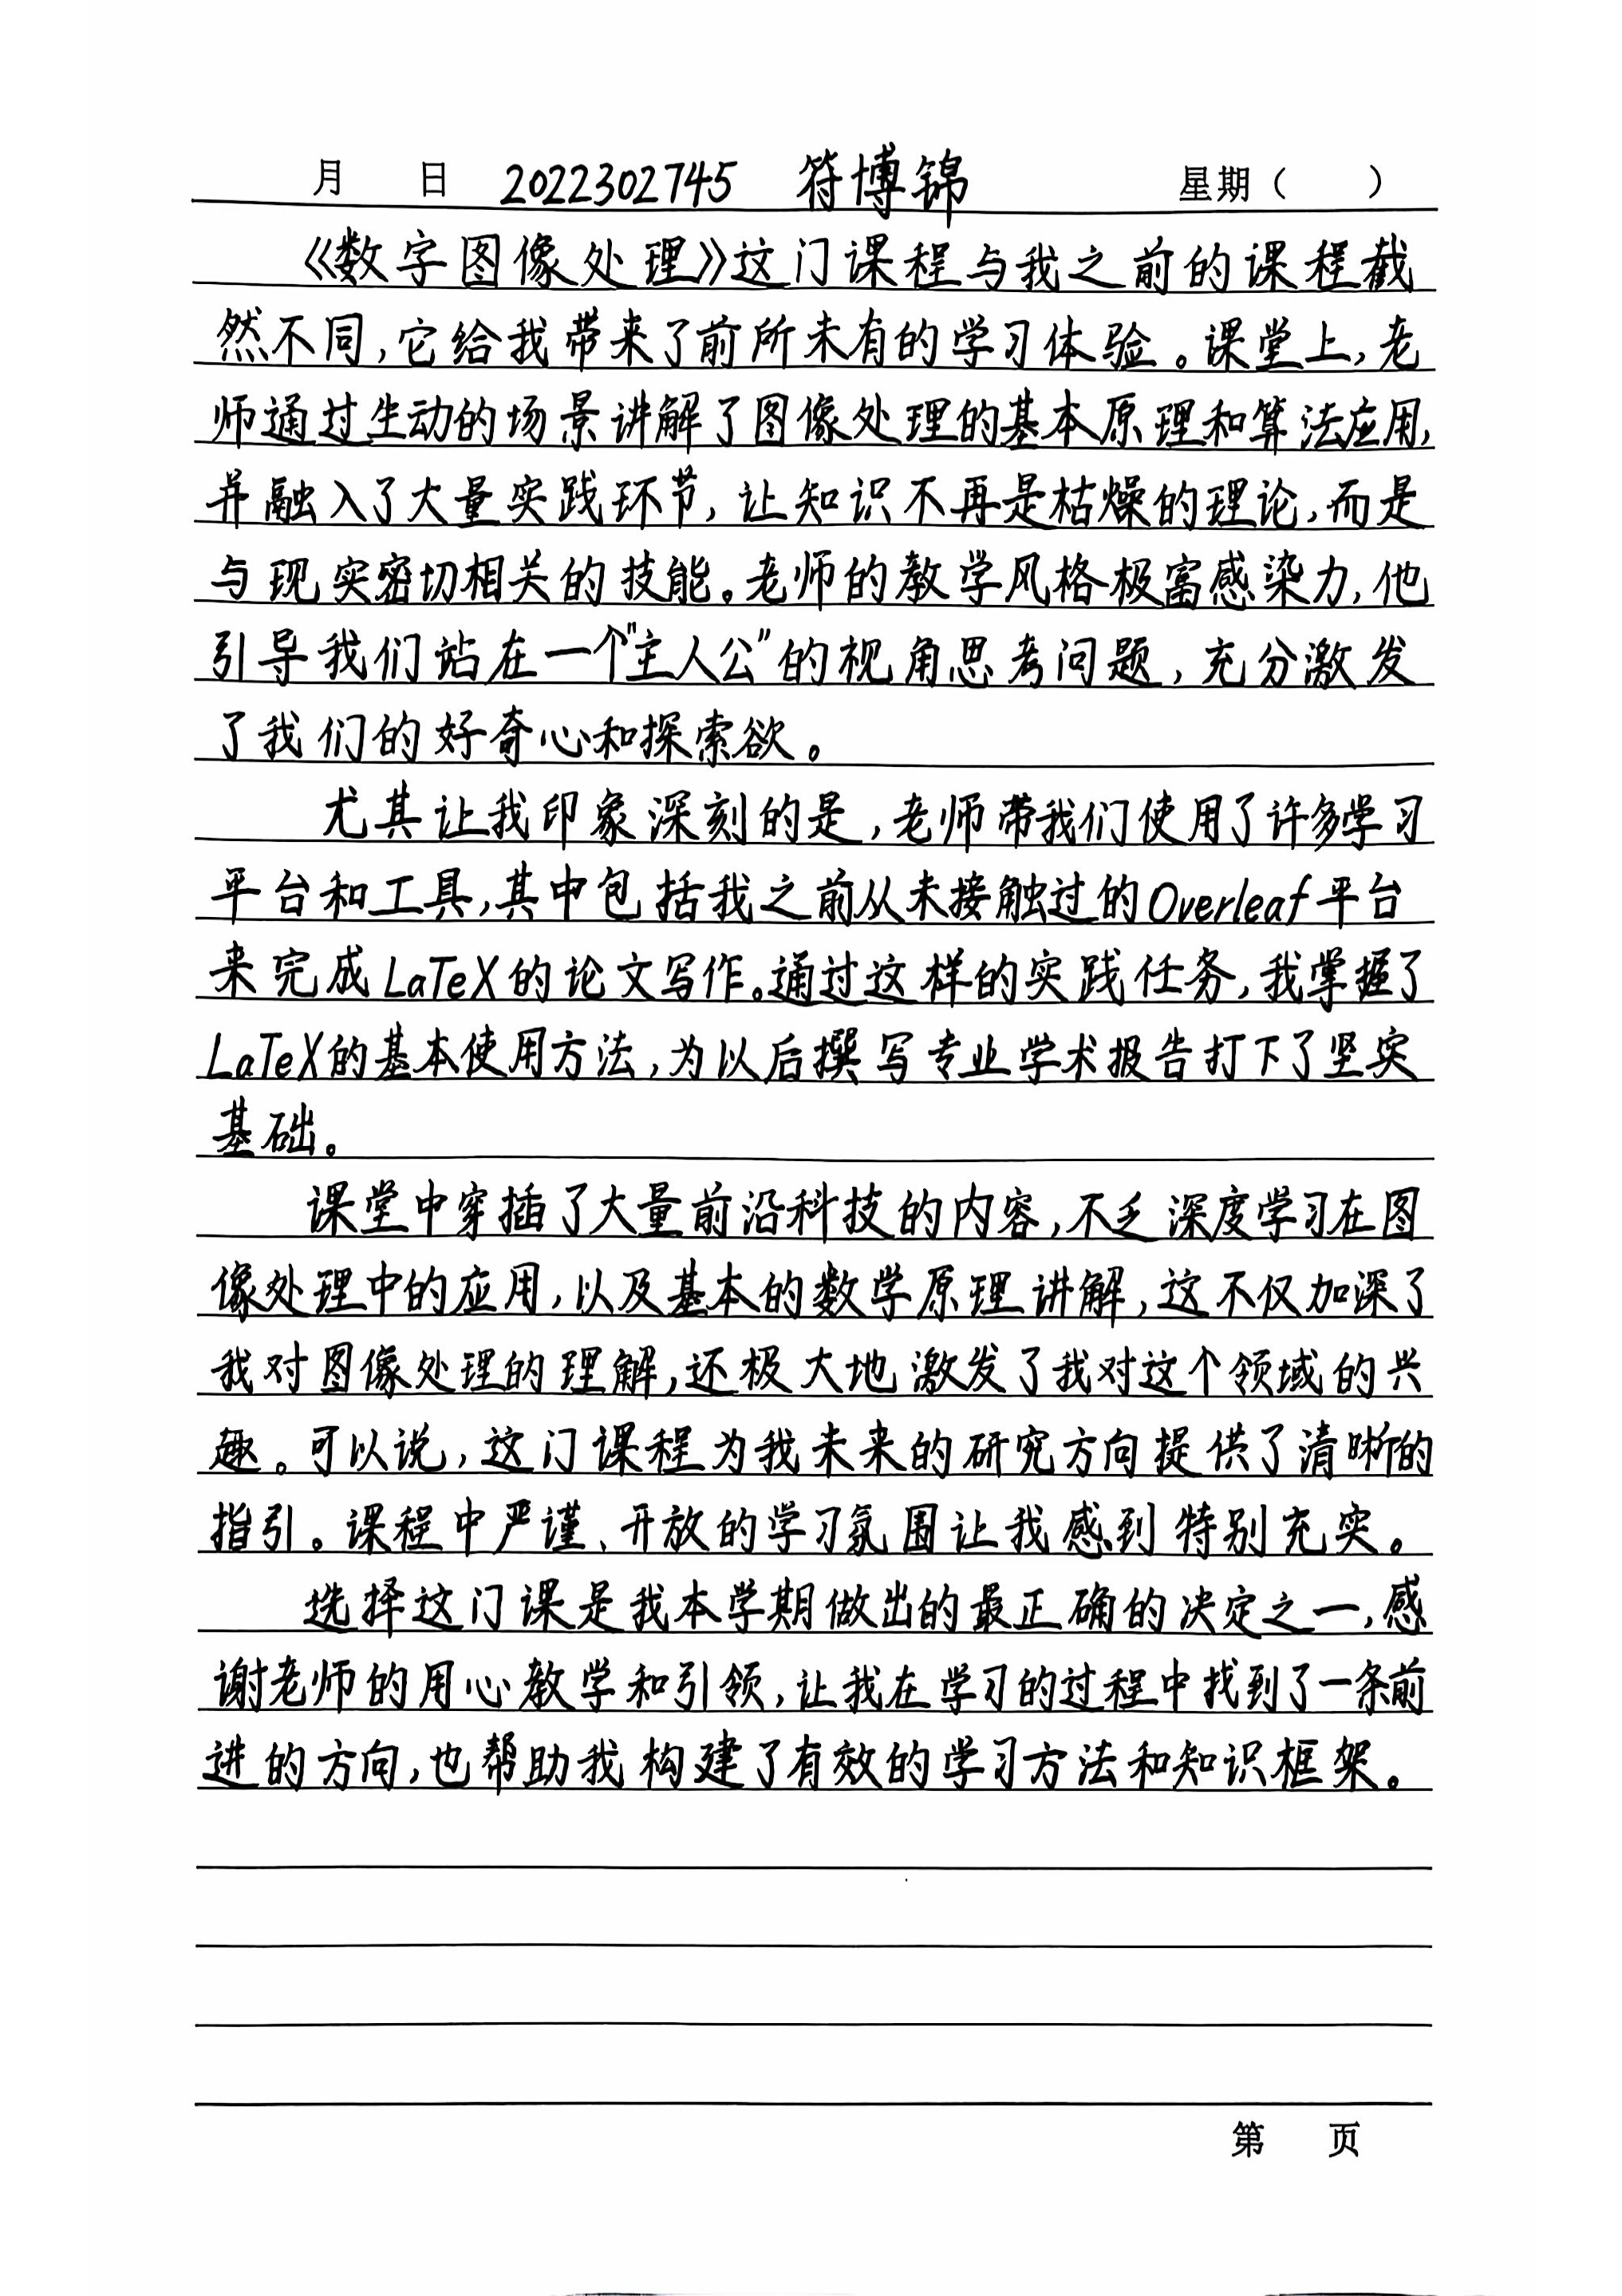 月 日 2022302745 符博锦 星期（ ）
《数字图像处理》这门课程与我之前的课程截
然不同,它给我带来了前所未有的学习体验。课堂上,老
师通过生动的场景讲解了图像处理的基本原理和算法应用,
并融入了大量实践环节,让知识不再是枯燥的理论,而是
与现实密切相关的技能。老师的教学风格极富感染力,他
引导我们站在一个"主人公"的视角思考问题,充分激发
了我们的好奇心和探索欲。
尤其让我印象深刻的是,老师带我们使用了许多学习
平台和工具,其中包括我之前从未接触过的Overleaf平台
来完成LaTeX的论文写作。通过这样的实践任务,我掌握了
LaTeX的基本使用方法,为以后撰写专业学术报告打下了坚实
基础。
课堂中穿插了大量前沿科技的内容,不乏深度学习在图
像处理中的应用,以及基本的数学原理讲解,这不仅加深了
我对图像处理的理解,还极大地激发了我对这个领域的兴
趣。可以说,这门课程为我未来的研究方向提供了清晰的
指引。课程中严谨、开放的学习氛围让我感到特别充实。
选择这门课是我本学期做出的最正确的决定之一,感
谢老师的用心教学和引领,让我在学习的过程中找到了一条前
进的方向,也帮助我构建了有效的学习方法和知识框架。
第 页